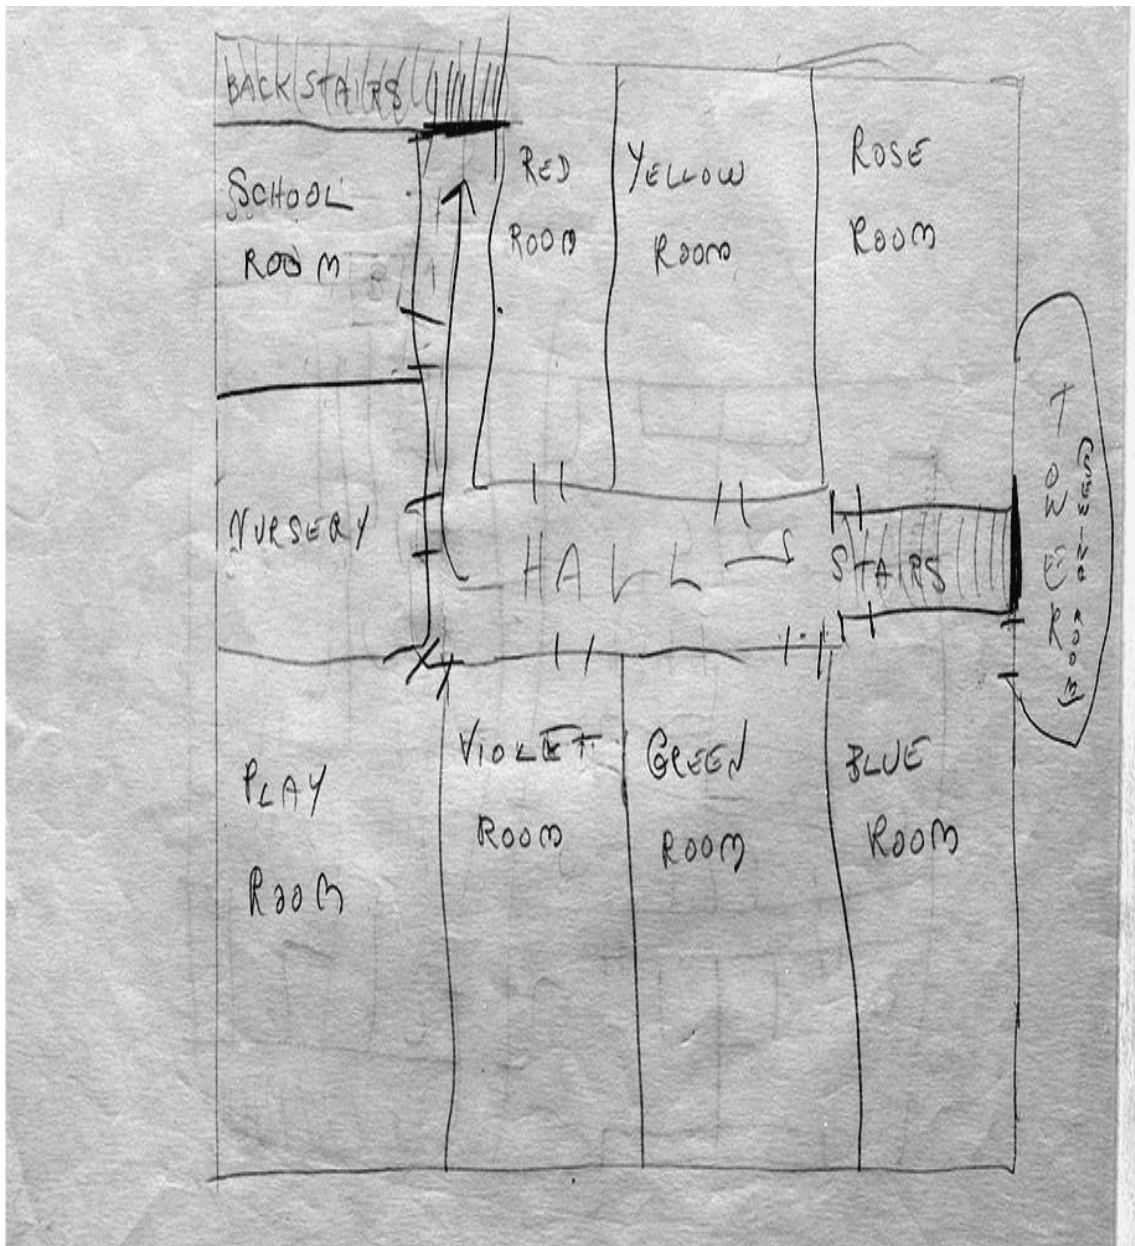 BACK STAIRS
SCHOOL
ROOM
RED
ROOM
YELLOW
ROOM
ROSE
ROOM
NURSERY
HALL
STAIRS
TOWER
SEWING ROOM
PLAY
ROOM
VIOLET
ROOM
GREEN
ROOM
BLUE
ROOM